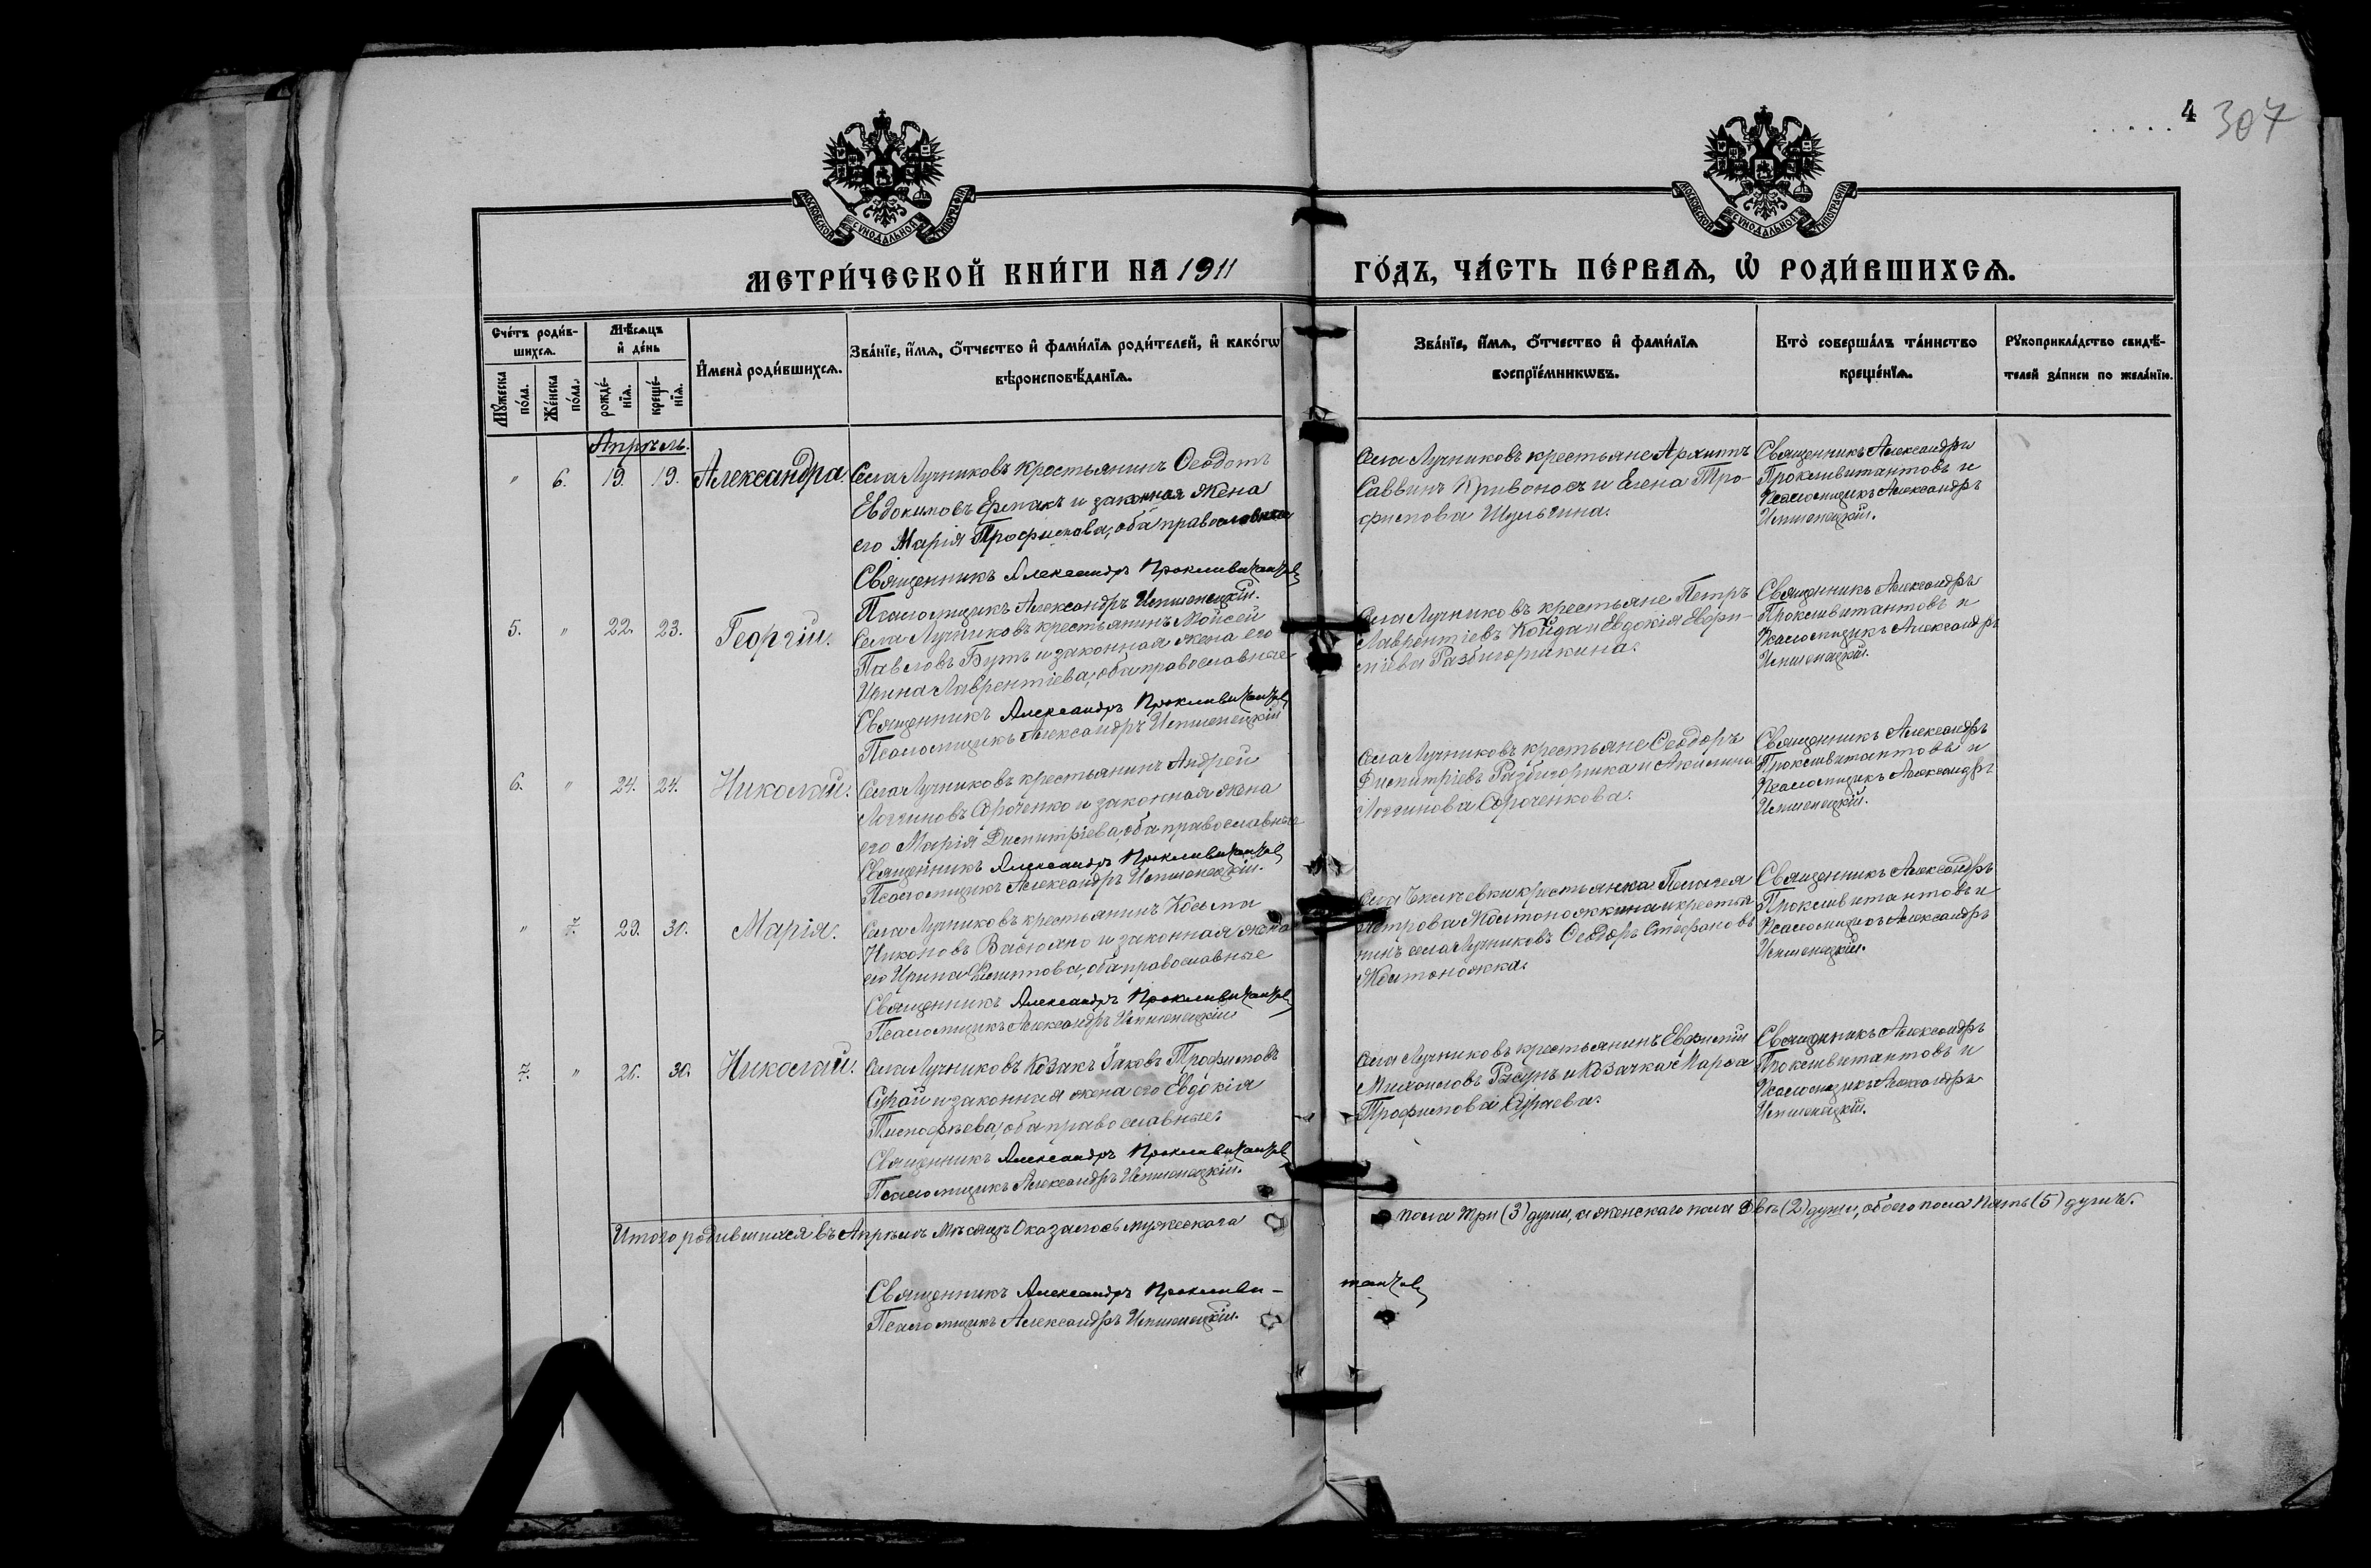 4 307
МОСКОВСКОЙ СѴНОДАЛЬНОЙ ТИПОГРАФІИ
МОСКОВСКОЙ СѴНОДАЛЬНОЙ ТИПОГРАФІИ
МЕТРИ́ЧЕСКОЙ КНИ́ГИ НА 1911 ГО́ДЪ, ЧА́СТЬ ПЕ́РВАѦ, Ѡ҆ РОДИ́ВШИХСѦ.
Сче́тъ роди́в-
шихсѧ.
Мꙋ́жеска по́ла.
Же́нска по́ла.
Мѣ́сѧцъ
и҆ де́нь
рожде́-
нїѧ.
креще́-
нїѧ.
И҆мена̀ роди́вшихсѧ.
Зва́нїе, и҆́мѧ, ѻ҆́тчество и҆ фами́лїѧ роди́телей, и҆ како́гѡ
вѣроисповѣ́данїѧ.
Зва́нїе, и҆́мѧ, ѻ҆́тчество и҆ фами́лїѧ
воспрїе́мникѡвъ.
Кто̀ соверша́лъ та́инство
креще́нїѧ.
Рꙋкоприкла́дство свидѣ́-
телей за́писи по жела́нїю.
Апрѣль.
" 6. 19. 19. Александра.
Села Лучниковъ крестьянинъ Ѳеодотъ
Евдокимовъ Ермакъ и законная жена
его Марія Трофимова, оба православные
Священникъ Александръ Проклевитантовъ
Псаломщикъ Александръ
Села Лучниковъ крестьяне Архиппъ
Саввинъ Кривоносъ и Елена Тро-
фимова Шульгина.
Священникъ Александръ
Проклевитантовъ и
Псаломщикъ Александръ
5. " 22. 23. Георгій.
Села Лучниковъ крестьянинъ Моисей
Павловъ Бутъ и законная жена его
Ирина Лаврентіева, оба православные
Священникъ Александръ Проклевитантовъ
Псаломщикъ Александръ
Села Лучниковъ крестьяне Петръ
Лаврентіевъ Койда и Евдокія Евфи-
міева
Священникъ Александръ
Проклевитантовъ и
Псаломщикъ Александръ
6. " 24. 24. Николай.
Села Лучниковъ крестьянинъ Андрей
Логгиновъ Сороченко и законная жена
его Марія Димитріева, оба православные
Священникъ Александръ Проклевитантовъ
Псаломщикъ Александръ
Села Лучниковъ крестьяне Ѳеодоръ
Димитріевъ и Акилина
Логгинова Сороченкова.
Священникъ Александръ
Проклевитантовъ и
Псаломщикъ Александръ
" 7. 29. 30. Марія.
Села Лучниковъ крестьянинъ Косьма
Никоновъ и законная жена
его Ирина Филиппова, оба православные
Священникъ Александръ Проклевитантовъ
Псаломщикъ Александръ
Села крестьянка Пелагея
Петрова Жолтоножкина и крестья-
нинъ села Лучниковъ Ѳеодоръ Стефановъ
Жолтоножка.
Священникъ Александръ
Проклевитантовъ и
Псаломщикъ Александръ
7. " 26. 30. Николай.
Села Лучниковъ Козакъ Іаковъ Трофимовъ
Сурай и законная жена его Евдокія
Тимофѣева, оба православные.
Священникъ Александръ Проклевитантовъ
Псаломщикъ Александръ
Села Лучниковъ крестьянинъ Евфимій
Михаиловъ и Козачка Марѳа
Трофимова Сураева.
Священникъ Александръ
Проклевитантовъ и
Псаломщикъ Александръ
Итого родившихся въ Апрѣлѣ мѣсяцѣ Оказалось мужескаго пола три (3) души, а женскаго пола двѣ (2) души, обоего пола Пять (5) душъ.
Священникъ Александръ Проклеви-тантовъ
Псаломщикъ Александръ